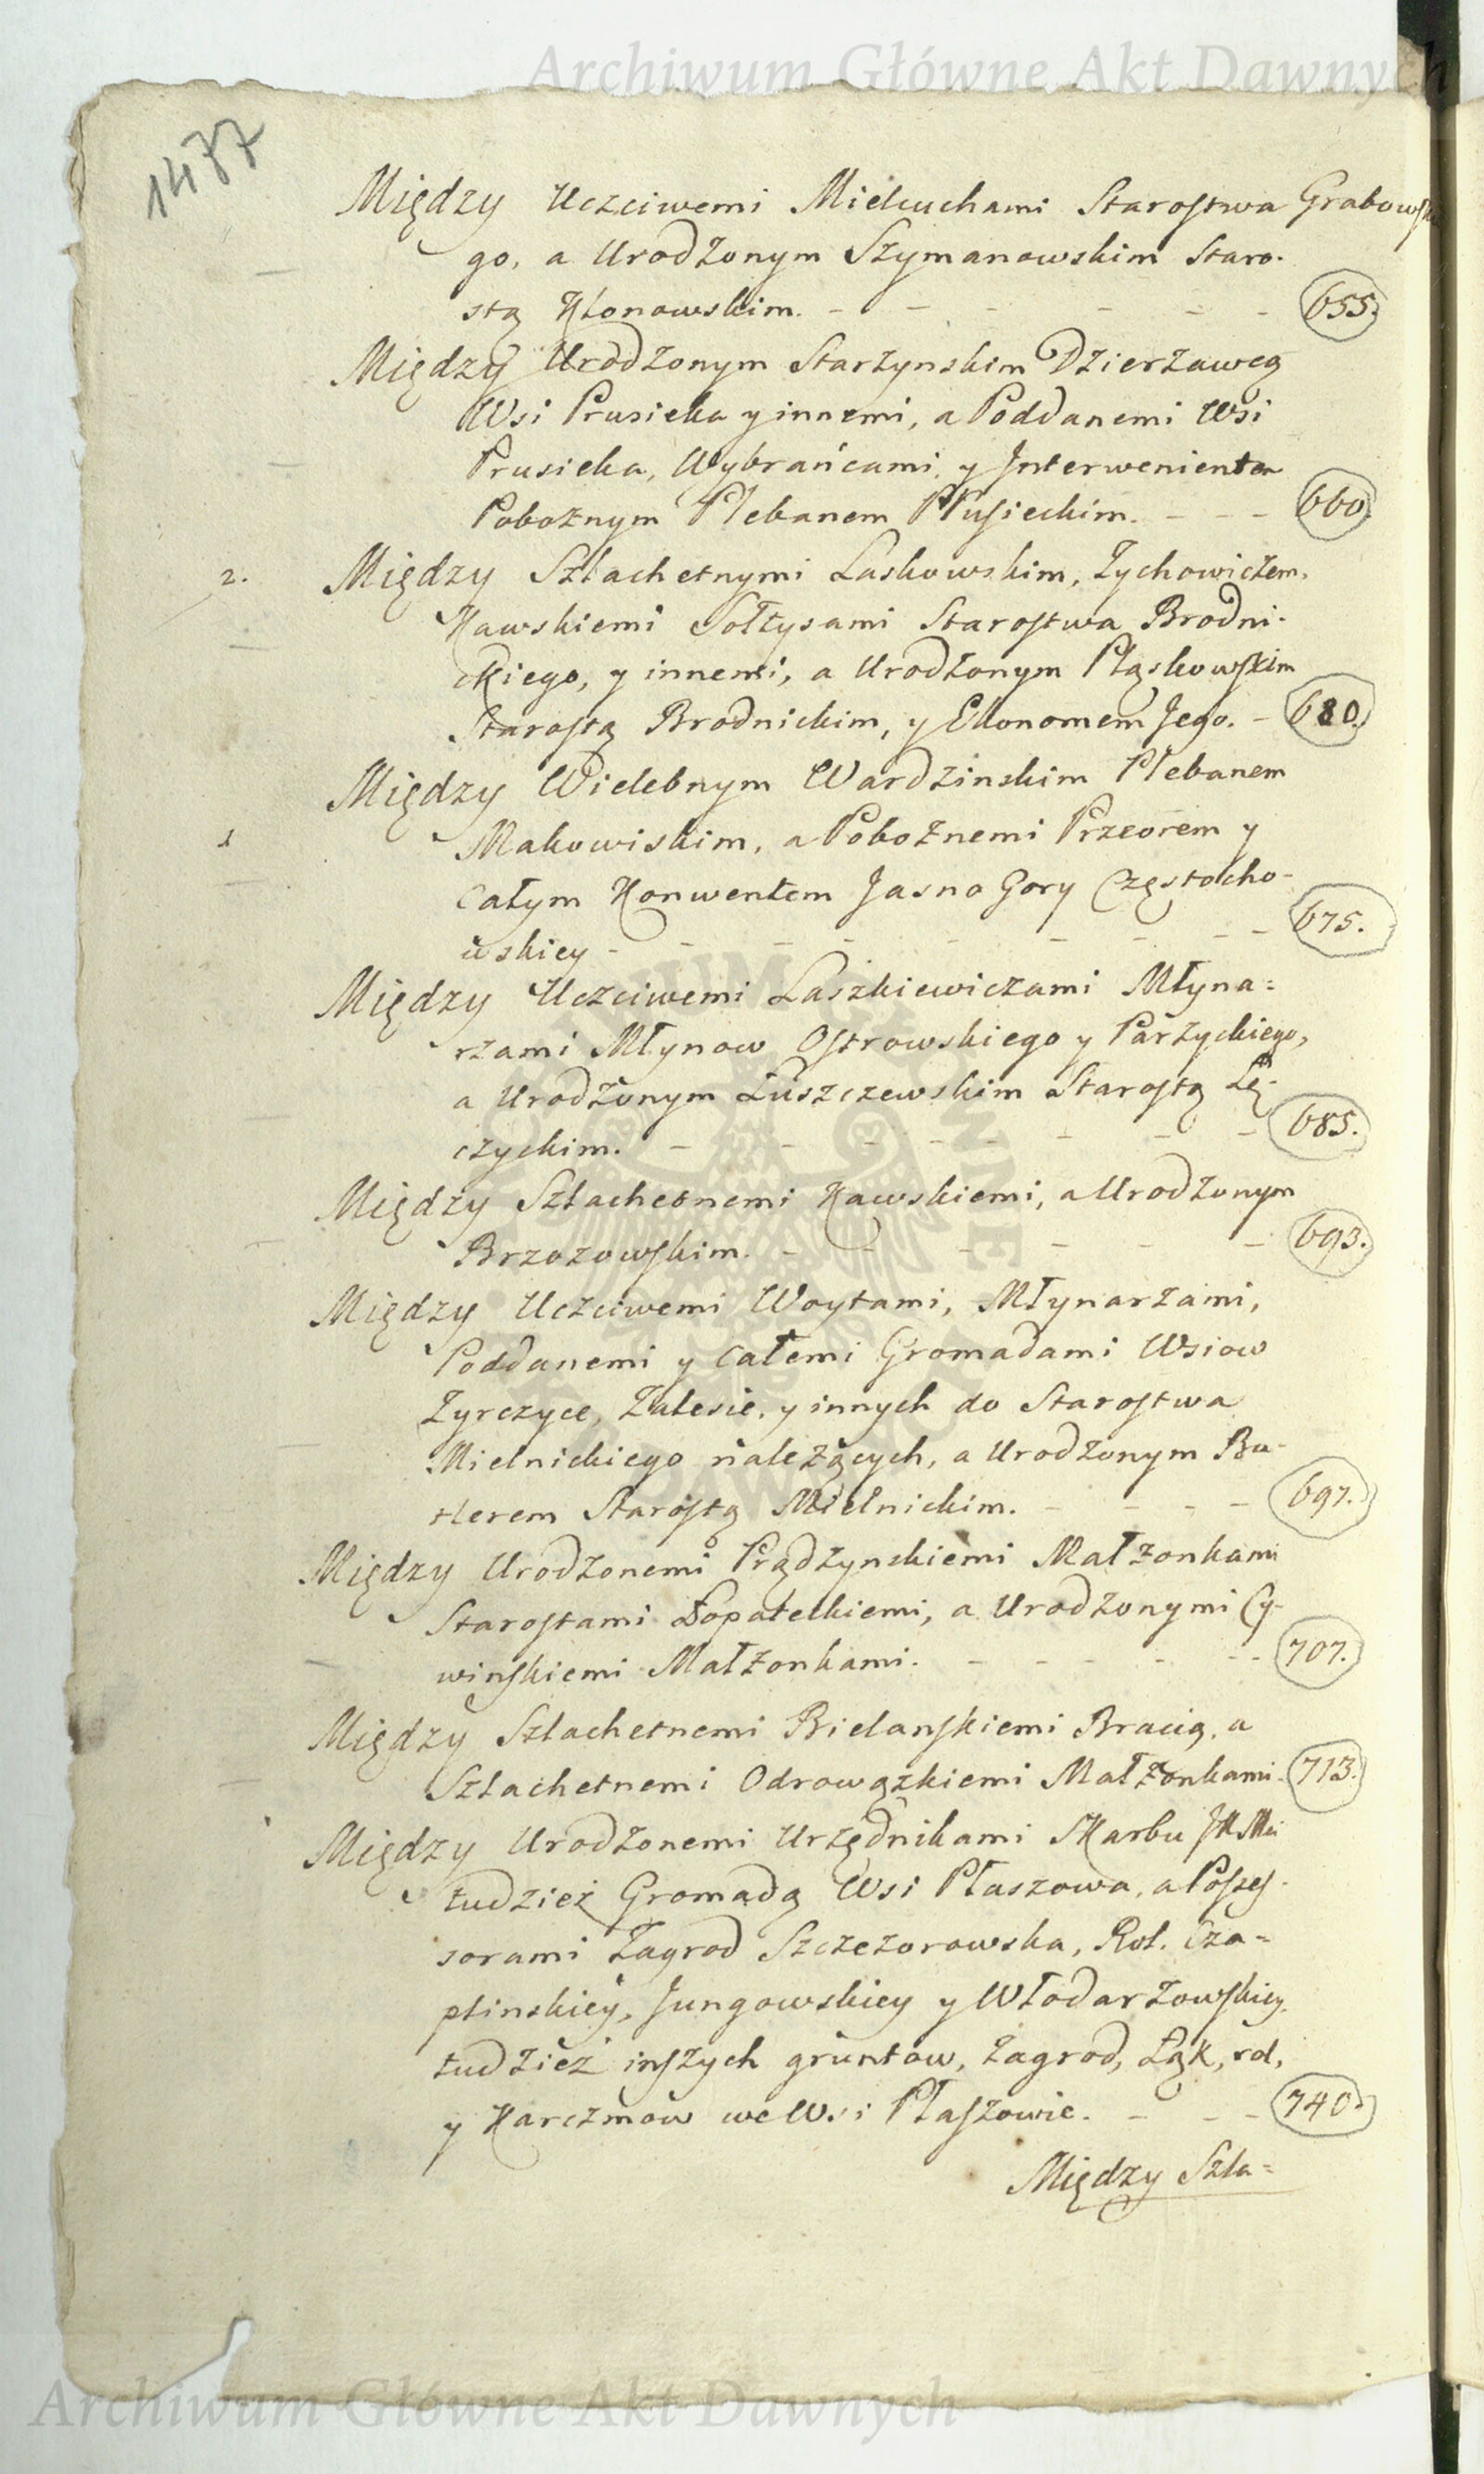 Archiwum Główne Akt Dawnych
1477
Między Uczciwemi Mielcuchami Starostwa Grabowski
go, a Urodzonym Szymanowskim Staro-
stą Kłonowskim. - - - - - - 655.
Między Urodzonym Starzynskim Dzierzawcą
Wsi Prusicka y innemi, a Poddanemi Wsi
Prusicka, Wybrańcami, y Interwenientem
Poboznym Plebanem Prusieckim. - - - 660.
2. Między Szlachetnymi Laskowskim, Zychowiczem,
Kawskiemi Sołtysami Starostwa Brodni-
ckiego, y innemi, a Urodzonym Pląskowskim
Starostą Brodnickim, y Ekonomem Jego. - 680.
Między Wielebnym Wardzinskim Plebanem
1 Makowiskim, a Poboznemi Przeorem y
Całym Konwentem Jasno Gory Częstocho-
wskiey - - - - - - - - - 675.
Między Uczciwemi Laszkiewiczami Młyna=
rzami Młynow Ostrowskiego y Parzyckiego,
a Urodzonym Łuszczewskim Starostą Łę-
czyckim. - - - - - - - - 685.
Między Szlachetnemi Kawskiemi, a Urodzonym
Brzozowskim. - - - - - - 693.
Między Uczciwemi Woytami, Młynarzami,
Poddanemi y Całemi Gromadami Wsiow
Zyrczyce, Zalesie, y innych do Starostwa
Mielnickiego należących, a Urodzonym Bu-
tlerem Starostą Mielnickim. - - - - 697.
Między Urodzonemi Prądzynskiemi Małzonkami
Starostami Łopateckiemi, a Urodzonymi Cy-
winskiemi Małzonkami. - - - - - - 707.
Między Szlachetnemi Bielanskiemi Bracią, a
Szlachetnemi Odrowązkiemi Małzonkami. 713.
Między Urodzonemi Urzędnikami Skarbu JKMci
tudziez Gromadą Wsi Płaszowa, a Posses-
sorami Zagrod Szczezorowska, Rol. Cza=
plinskiey, Jungowskiey y Włodarzowskiey,
tudziez inszych gruntow, Zagrod, Łąk, rol,
y Karczmow we Wsi Płaszowie. - - - 740.
Między Szla=
Archiwum Główne Akt Dawnych